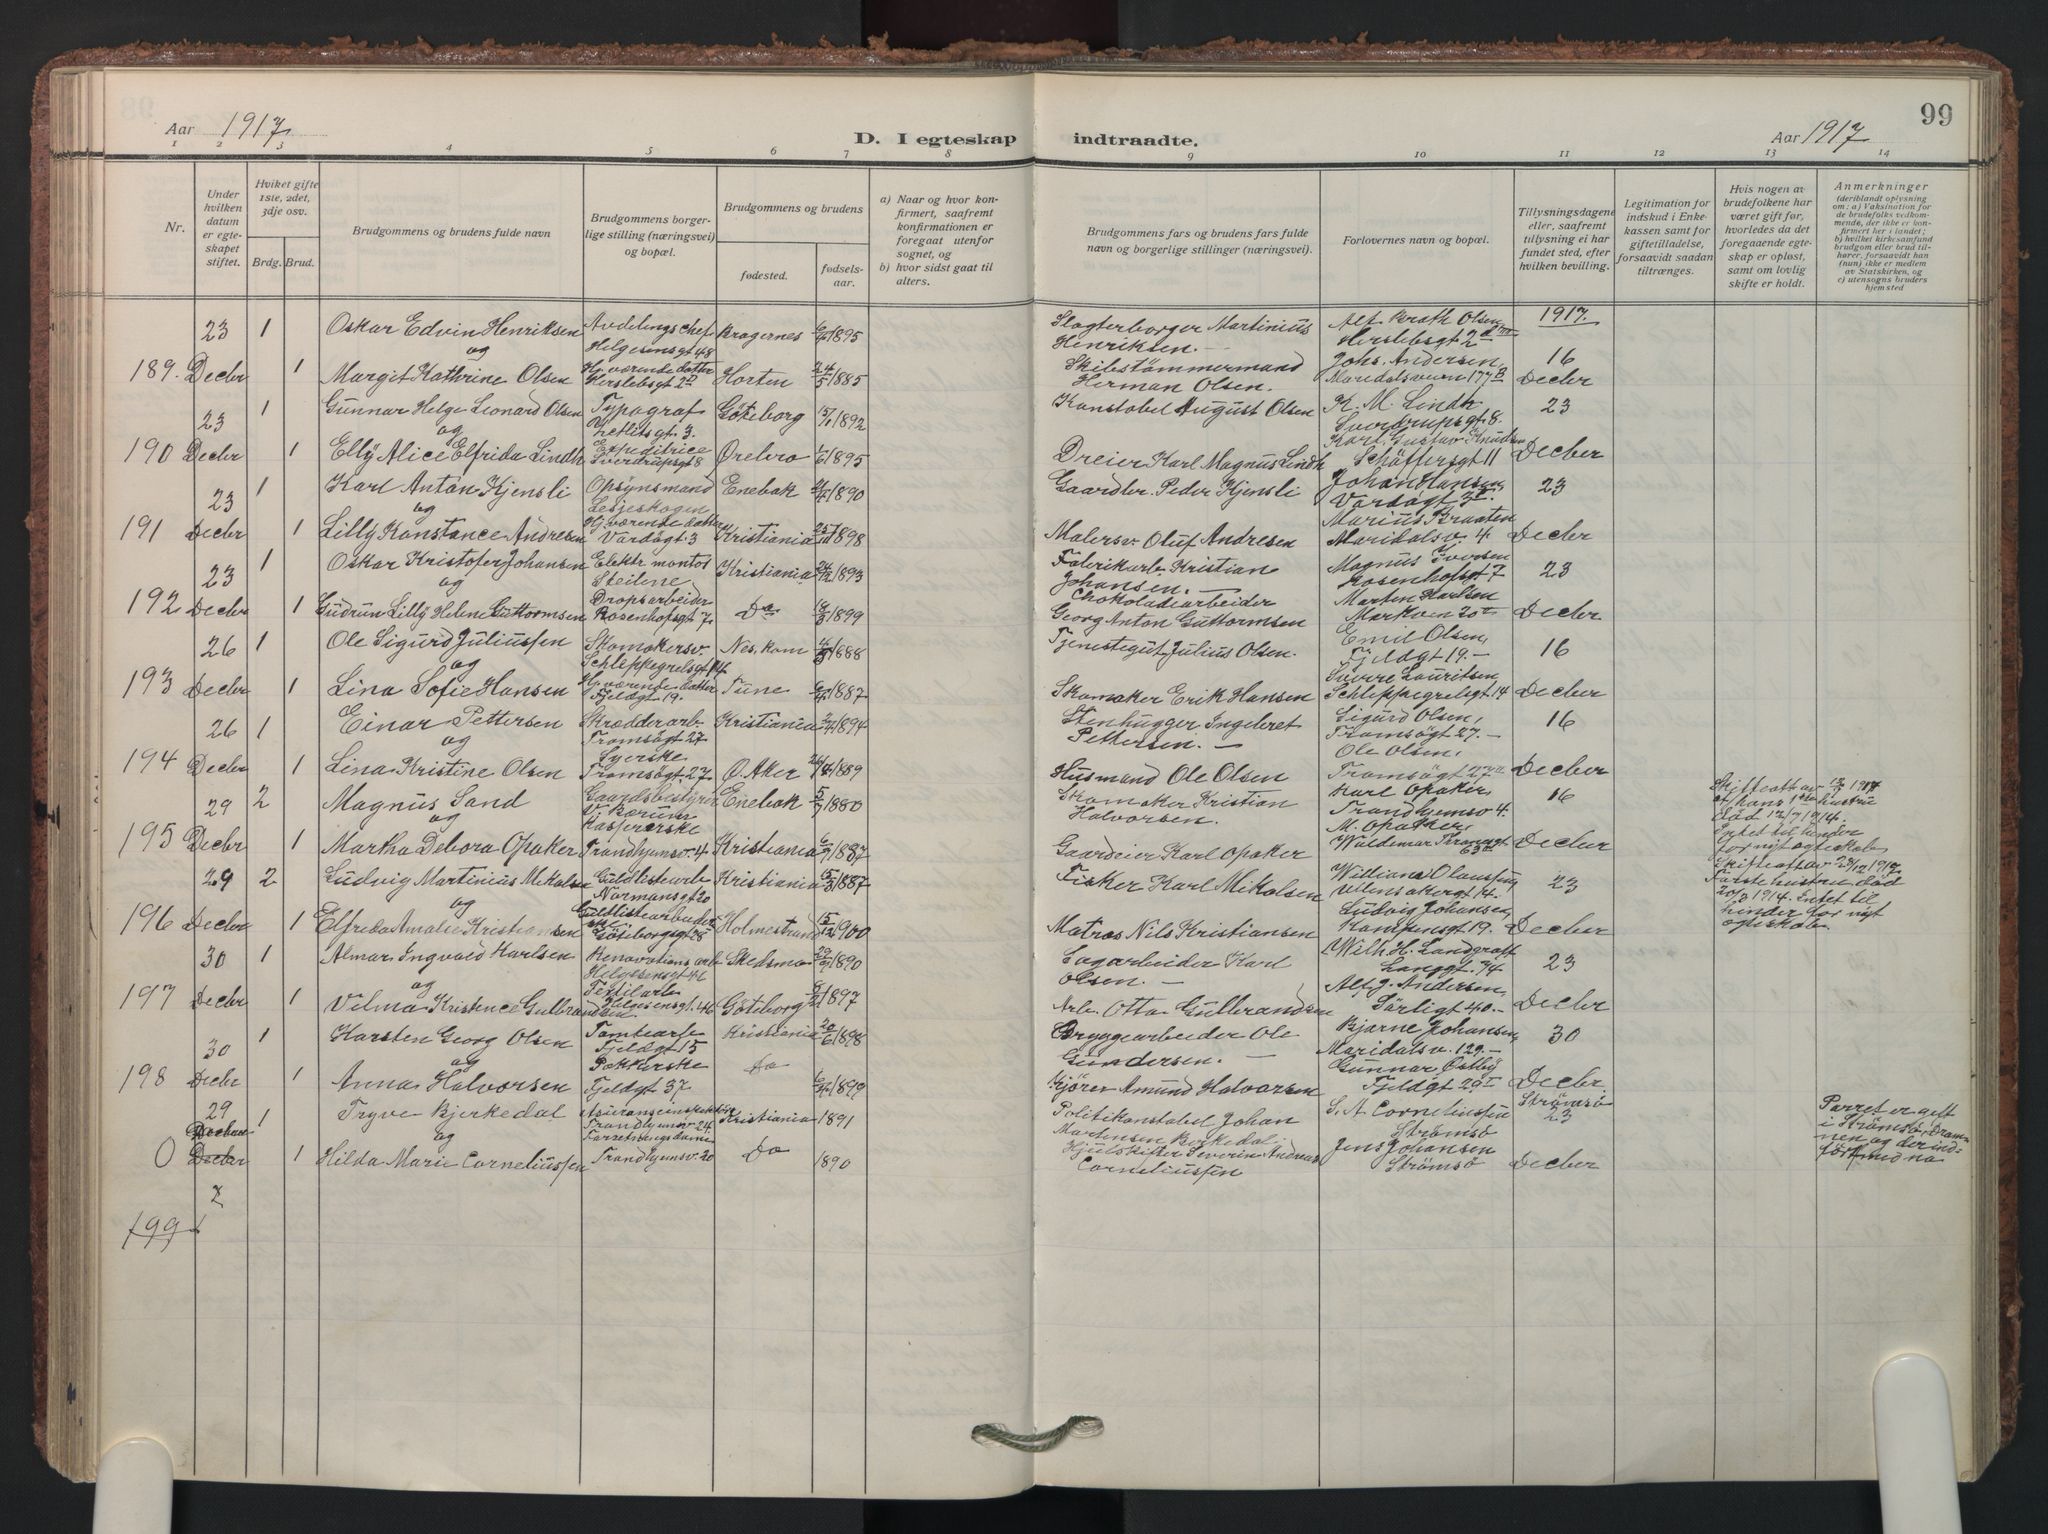 99
Aar 1917
D. I egteskap indtraadte.
Aar 1917
1 2 3 4 5 6 7 8 9 10 11 12 13 14
Nr.
Under hvilken datum er egteskapet stiftet.
Hviket gifte 1ste, 2det, 3dje osv.
Brdg. Brud.
Brudgommens og brudens fulde navn
Brudgommens borgerlige stilling (næringsvei) og bopæl.
Brudgommens og brudens
fødested.
fødselsaar.
a) Naar og hvor konfirmert, saafremt konfirmationen er foregaat utenfor sognet, og
b) hvor sidst gaat til alters.
Brudgommens fars og brudens fars fulde navn og borgerlige stillinger (næringsvei).
Forlovernes navn og bopæl.
Tillysningsdagene eller, saafremt tillysning ei har fundet sted, efter hvilken bevilling.
Legitimation for indskud i Enkekassen samt for giftetilladelse, forsaavidt saadan tiltrænges.
Hvis nogen av brudefolkene har været gift før, hvorledes da det foregaaende egteskap er opløst, samt om lovlig skifte er holdt.
Anmerkninger (deriblandt oplysning om: a) Vaksination for de brudefolks vedkommende, der ikke er konfirmert her i landet; b) hvilket kirkesamfund brudgom eller brud tilhører, forsaavidt han (hun) ikke er medlem av Statskirken, og c) utensogns bruders hjemsted
1917.
23 1 Oskar Edvin Henriksen Avdelingschef Bragernes 1895 Slagterborger Martinius Alf Brath Olsen
og Helgesensgt 48 Henriksen. Herslebsgt 2
189. Decbr 1 Margit Kathrine Olsen Hj. værende datter Herslebsgt 2 Horten 24/5 1885 Skibstömmermand Herman Olsen. Johs. Andersen, Maridalsveien 177 B 16 Decbr
23 1 Gunnar Helge Leonard Olsen Typograf Göteborg 1892 Konstabel August Olsen K. M. Lindh 23
og Sverdrupsgt. 8.
190 Decbr 1 Elly Alice Elfrida Lindh Expeditrice Sverdrupsgt 8 Örebro 1895 Dreier Karl Magnus Lindh Karl Gustav Knudsen Schäffersgt 11 Decber
23 1 Karl Anton Kjensli Opsynsmand Enebak 1890 Gaardbr. Peder Kjensli Johan Hansen, 23
og Vardögt 3
191 Decbr 1 Lilly Konstance Andresen Hj. værende datter Vardögt 3 Kristiania 1898 Malersv. Oluf Andresen Marius Braaten Maridalsv. 4 Decber
23 1 Oskar Kristofer Johansen Elektr. montör Kristiania 1893 Fabrikarb. Kristian Magnus Iversen 23
og Steilene Johansen. Rosenhofsgt 7
192 Decbr 1 Gudrun Lilly Helene Guttormsen Dropsarbeider Rosenhofsgt 7. Do 1899 Chokoladearbeider Georg Anton Guttormsen Morten Karlsen Markvn 20 Decber
26 1 Ole Sigurd Juliussen Skomakersv. Nes, Rom 1888 Tjenestegut Julius Olsen. Emil Olsen, 16
og Schleppegrelsgt 14 Fjeldgt 19.
193 Decbr 1 Lina Sofie Hansen Hj. værende datter Fjeldgt 19. Tune 1887 Skomaker Erik Hansen Sverre Lauritsen Schleppegrelsgt 14 Decber
26 1 Einar Pettersen Skrædderarb. Kristiania 1894 Stenhugger Ingebret Sigurd Olsen, 16
og Tromsögt 27 Pettersen. Tromsögt 27.
194 Decbr 1 Lina Kristine Olsen Syerske Tromsögt. 27 Ö. Aker 1889 Husmand Ole Olsen Ole Olsen, Tromsögt 27 Decber
29 2 Magnus Sand Gaardsbestyrer Enebak 5/7 1880 Skomaker Kristian Karl Opaker, 16
og V. Bærum Halvorsen. Trondhjemsv 4.
195 Decbr 1 Martha Debora Opaker Kaspererske Trondhjemsv. 4 Kristiania 1887 Gaardeier Karl Opaker M. Opaker, Waldemar Thranesgt 63 Decber
Skifteatt av 1917
hans 1ste hustru
död 12/7 1914.
Intet til hinder
for nyt egteskab
29 2 Ludvig Martinius Mikalsen Guldlistearb Kristiania 1887 Fisker Karl Mikalsen William Olaussen 23
og Normansgt 20
196 Decbr 1 Elfrida Amalie Kristiansen Guldlistearbeider Göteborgsgt 28 Holmestrand 15/12 1900 Matros Nils Kristiansen Ludvig Johansen, Kampensgt 19. Decber
Skifteatt av 23/12 1917
Förstehustru död
20/3 1914. Intet til
hinder for nyt
egteskab.
30 1 Almar Ingvald Karlsen Renovations arb Skedsmo 1890 Sagarbeider Karl Wilh. H. Landgraff 23
og Helgesensgt 46 Olsen. Langgt. 34
197 Decbr 1 Vilma Kristence Gulbrandsen Textilarb. Helgesensgt. 46 Göteborg 1897 Arb. Otto Gulbrandsen Alf J. Andersen, Sörligt 40. Decber
30 1 Karsten Georg Olsen Tomtearb Kristiania 20/6 1898 Bryggearbeider Ole Bjarne Johansen, 30
og Fjeldgt 15 Gundersen. Maridalsv. 129.
198 Decbr 1 Anna Halvorsen Pakkerske Fjeldgt 37 Do 1899 Kjörer Amund Halvorsen Gunnar Östby Fjeldgt 29 Decbr.
29 1 Trygve Bjerkedal Assuranseinspektör Kristiania 1891 Politikonstabel Johan S. A. Corneliussen Strömsö 23
og Trondhjemsv. 24. Martensen Birkedal Strömsö
0 Decbr 1 Hilda Marie Corneliussen Forretningsdame Trondhjemsv. 20 Do 1890 Hjulskifter Severin Andreas Corneliussen Jens Johansen Strömsö Decber
Parret er gift
i Strömsö, Drammen
og der indfört
med no
199